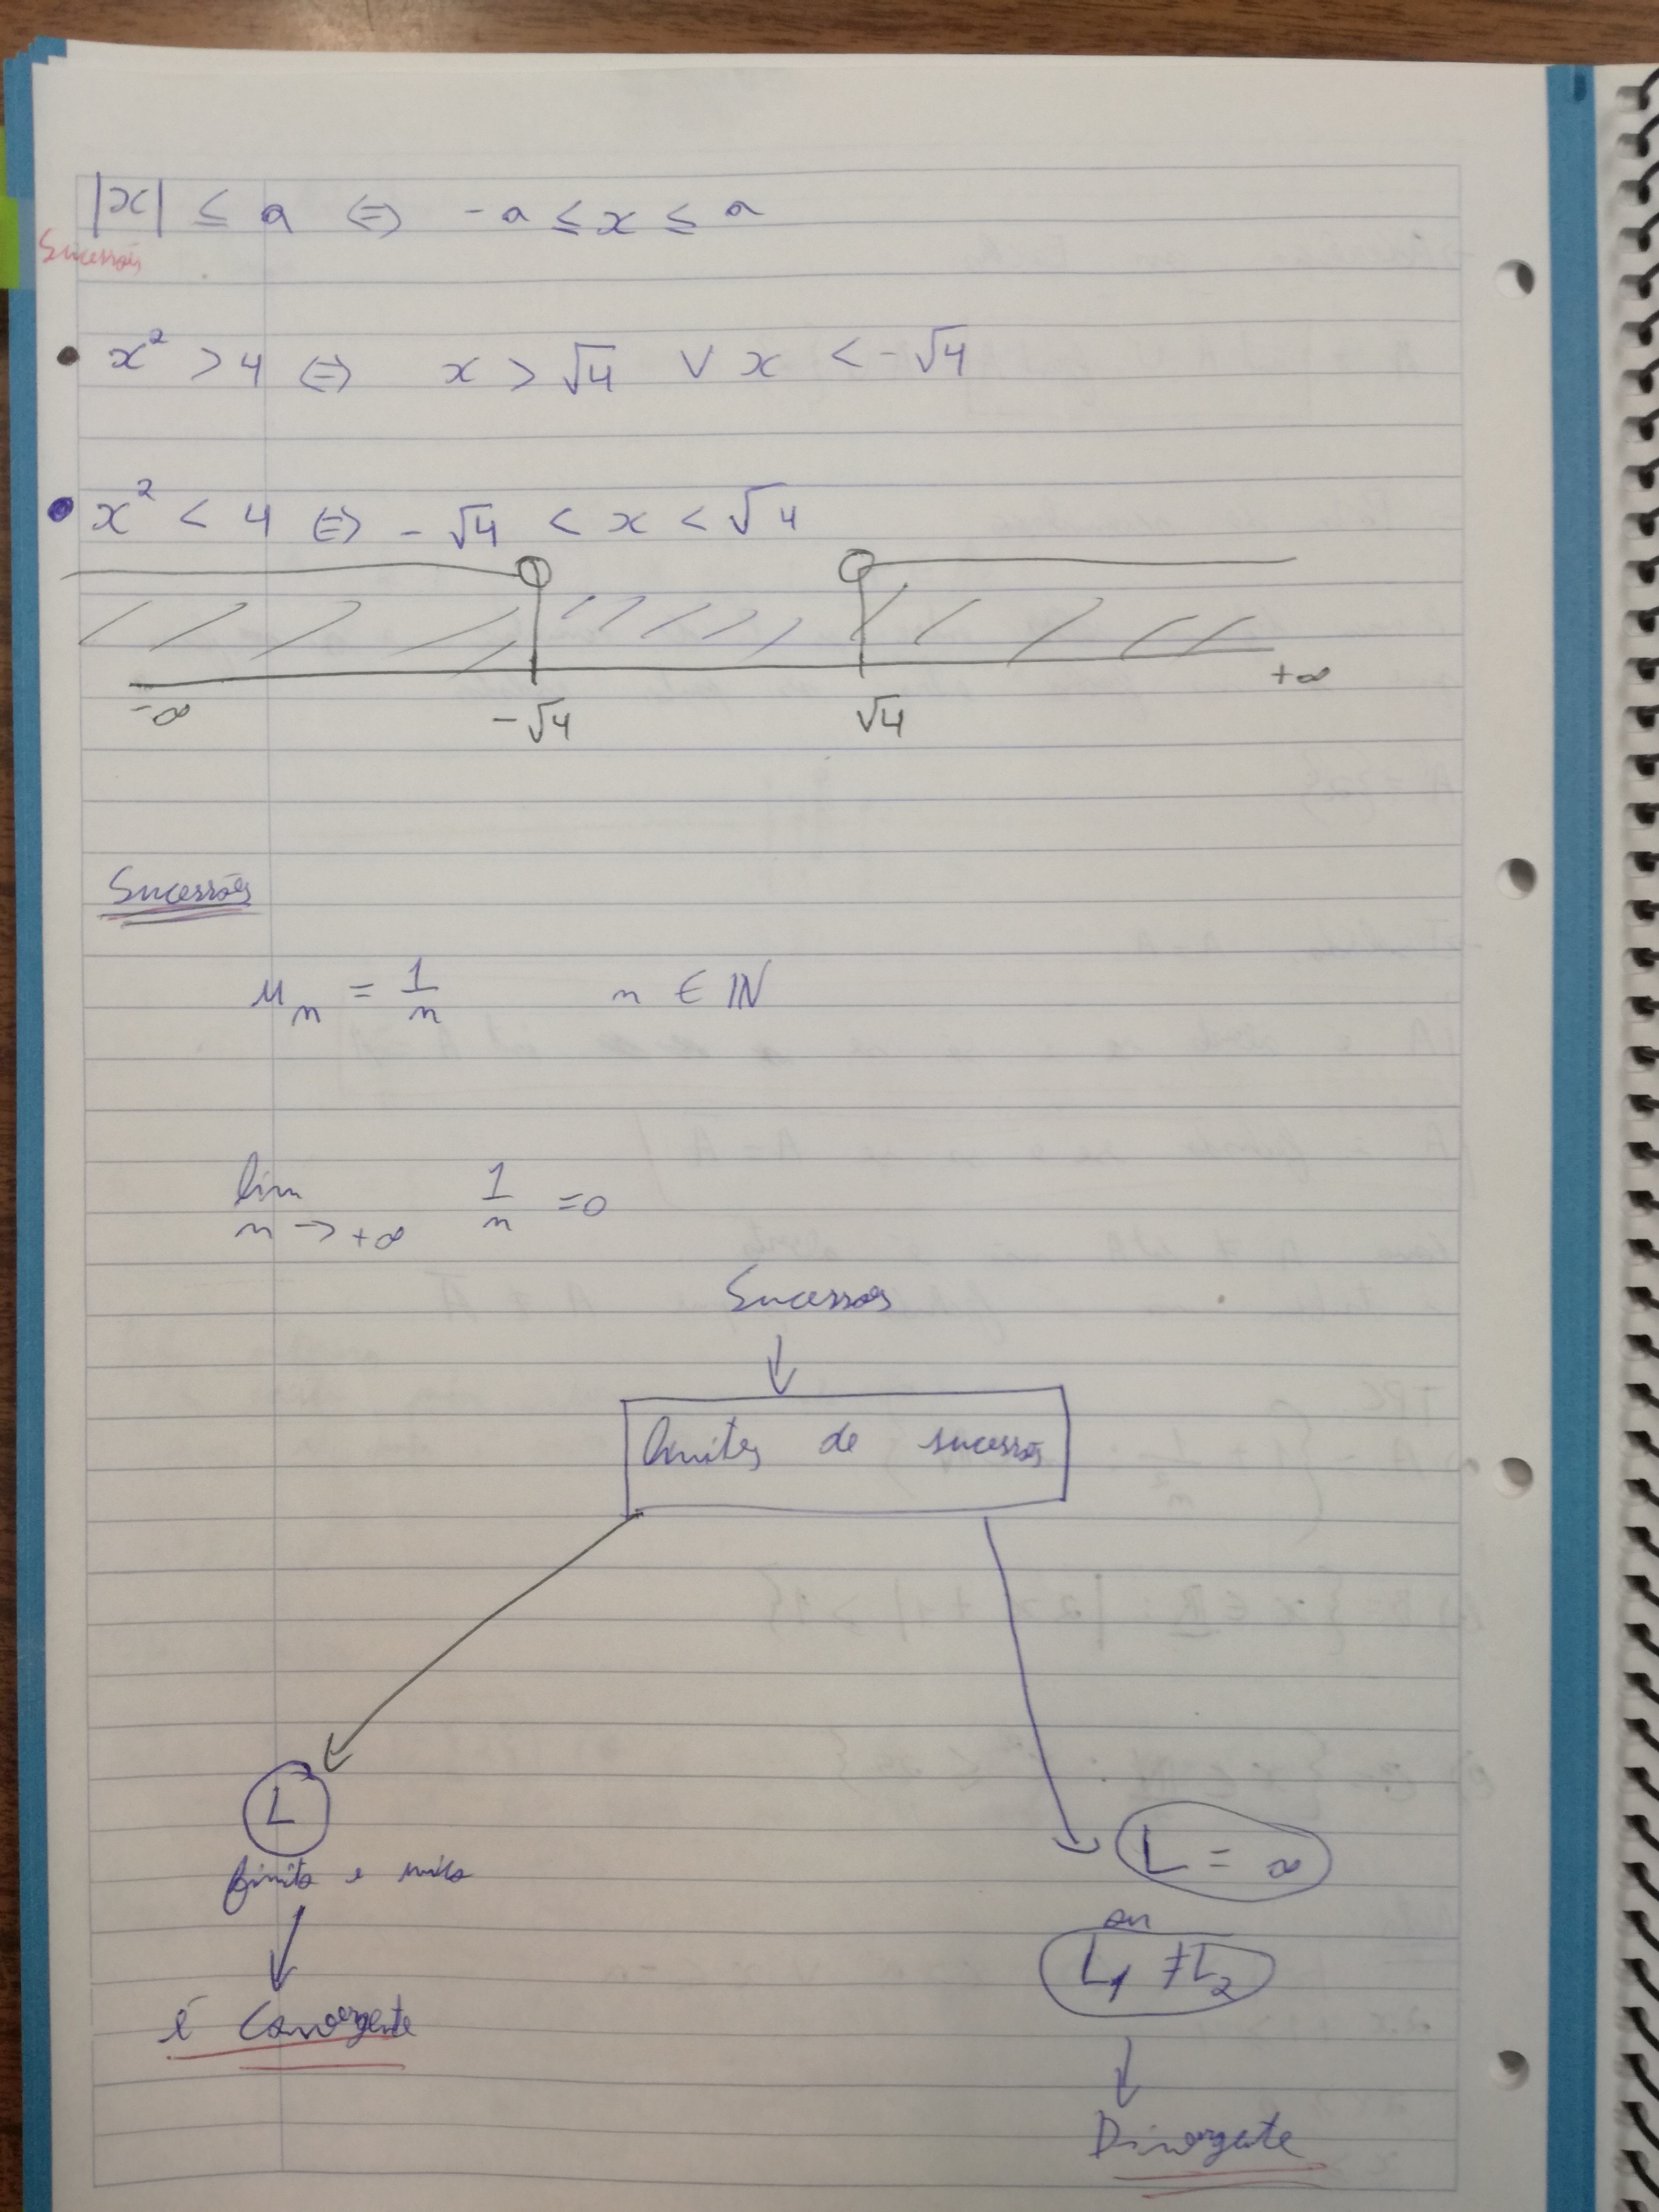 |x| ≤ a ⇔ -a ≤ x ≤ a
Sucessões
• x² > 4 ⇔ x > √4 ∨ x < -√4
• x² < 4 ⇔ -√4 < x < √4
-∞ -√4 √4 +∞
Sucessões
u_n = 1/n n ∈ ℕ
lim n → +∞ 1/n = 0
Sucessões
limites de sucessões
L
finito e único
é Convergente
L = ∞
ou
L₁ ≠ L₂
Divergente